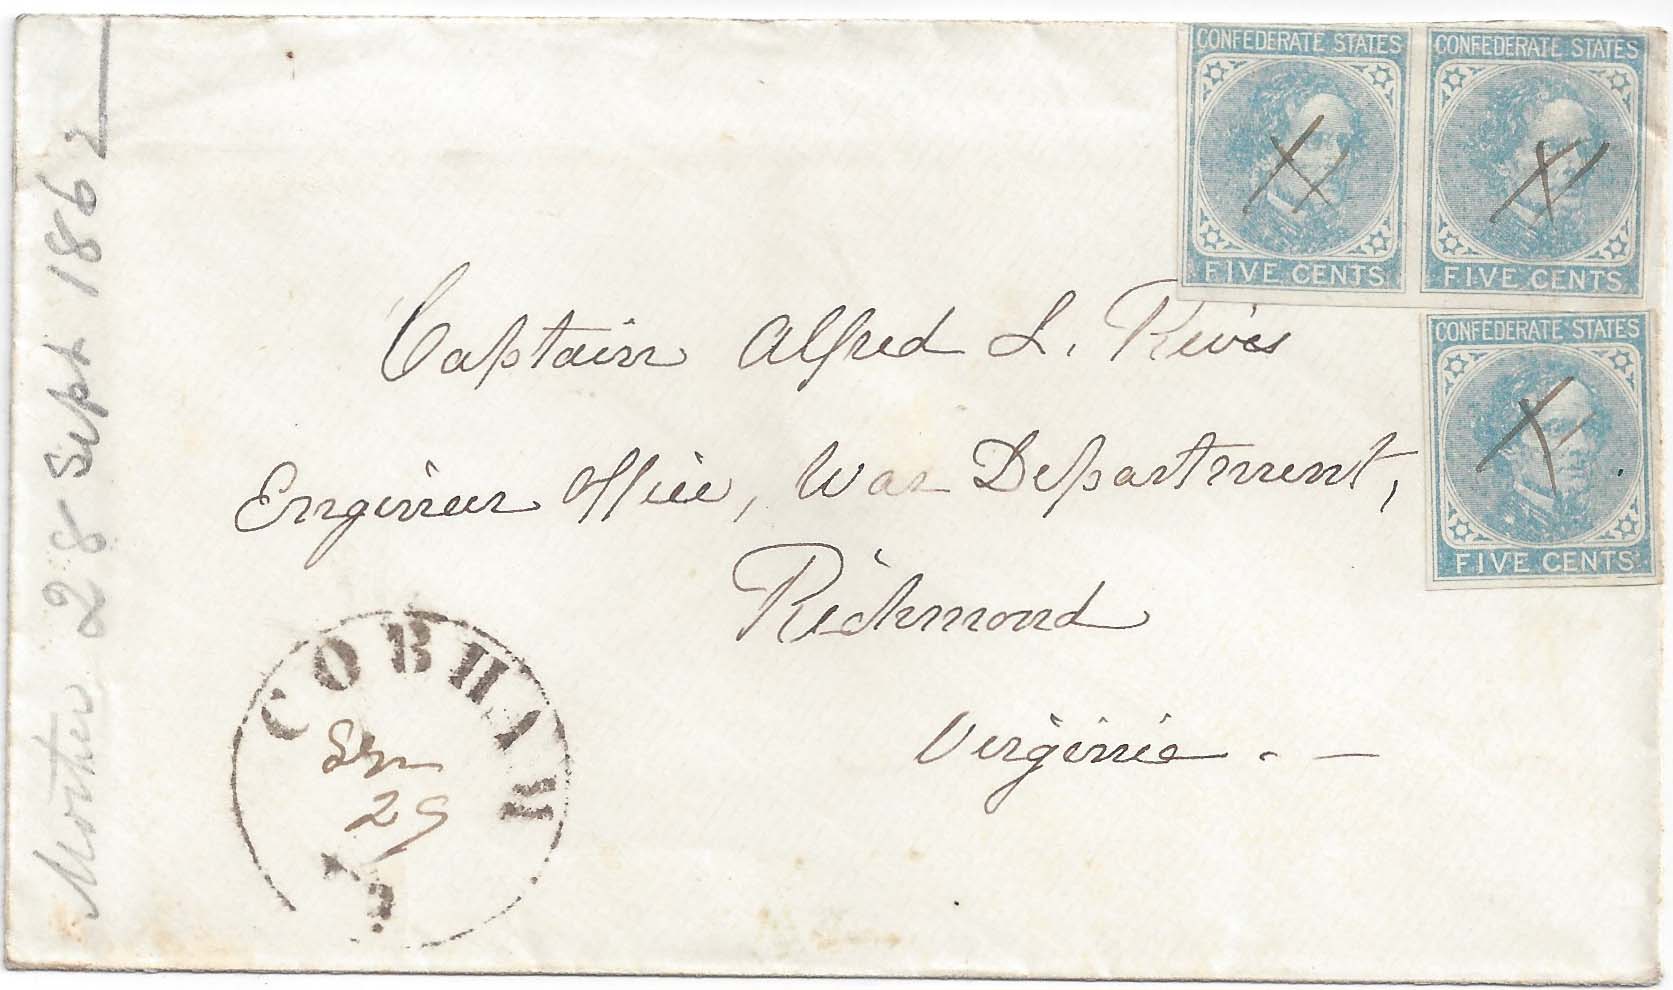 CONFEDERATE STATES
FIVE CENTS
CONFEDERATE STATES
FIVE CENTS
CONFEDERATE STATES
FIVE CENTS
Captain Alfred L. Rives
Engineer Office, War Department,
Richmond
Virginia. —
COBHAM
29
Mother 28 Sept 1862